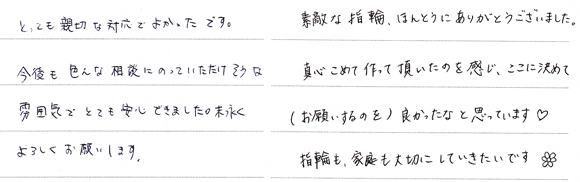 とっても親切な対応でよかったです。
今後も色んな相談にのっていただけそうな
雰囲気でとても安心できました。末永く
よろしくお願いします。
素敵な指輪、ほんとうにありがとうございました。
真心こめて作って頂いたのを感じ、ここに決めて
(お願いするのを)良かったなと思っています♡
指輪も、家庭も大切にしていきたいです